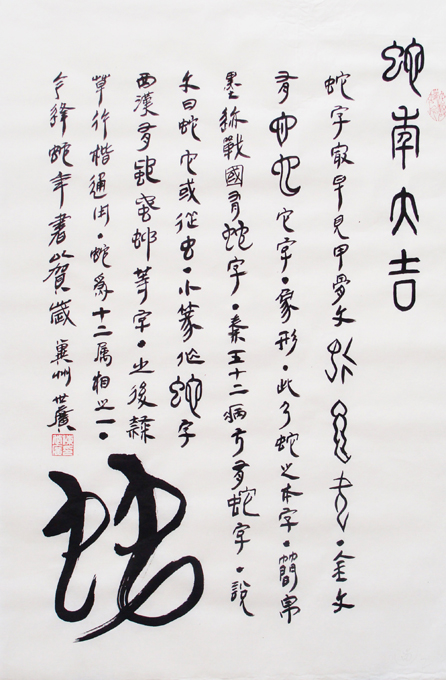 蛇年大吉
蛇字最早見甲骨文・金文
有它字・象形・此乃蛇之本字・簡帛
墨跡戰國有蛇字・秦五十二病方有蛇字・說
文曰蛇它或從虫・小篆作蛇字
西漢有等字・之後隸
草行楷通出・蛇爲十二属相之一・
今逢蛇年書以賀歲 冀州世廣
蛇